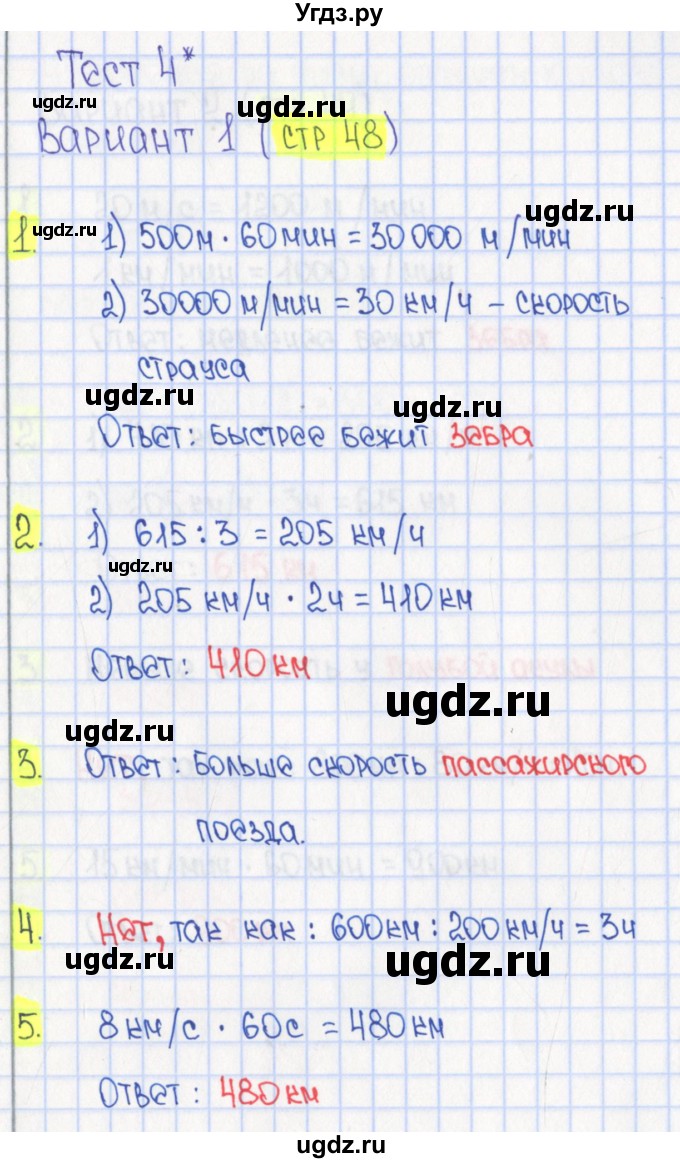 Угдз.ру
Тест 4*
ugdz.ru ugdz.ru
Вариант 1 (стр 48)
1. ugdz.ru 1) 500м · 60мин = 30000 м/мин
2) 30000 м/мин = 30 км/ч – скорость
страуса
ugdz.ru ugdz.ru
Ответ: быстрее бежит зебра
2. 1) 615 : 3 = 205 км/ч
ugdz.ru
2) 205 км/ч · 2ч = 410км
Ответ: 410 км
ugdz.ru
ugdz.ru
3. Ответ: больше скорость пассажирского
поезда.
4. Нет, так как: 600км : 200км/ч = 3ч
ugdz.ru ugdz.ru
5. 8 км/с · 60с = 480км
Ответ: 480 км
ugdz.ru